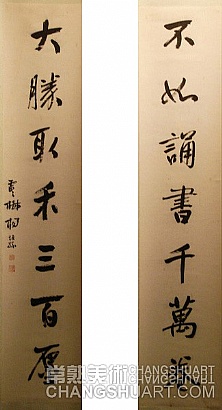 不如誦書千萬卷
大勝取禾三百廛
常熟美術 CHANGSHUART
CHANGSHUART.COM